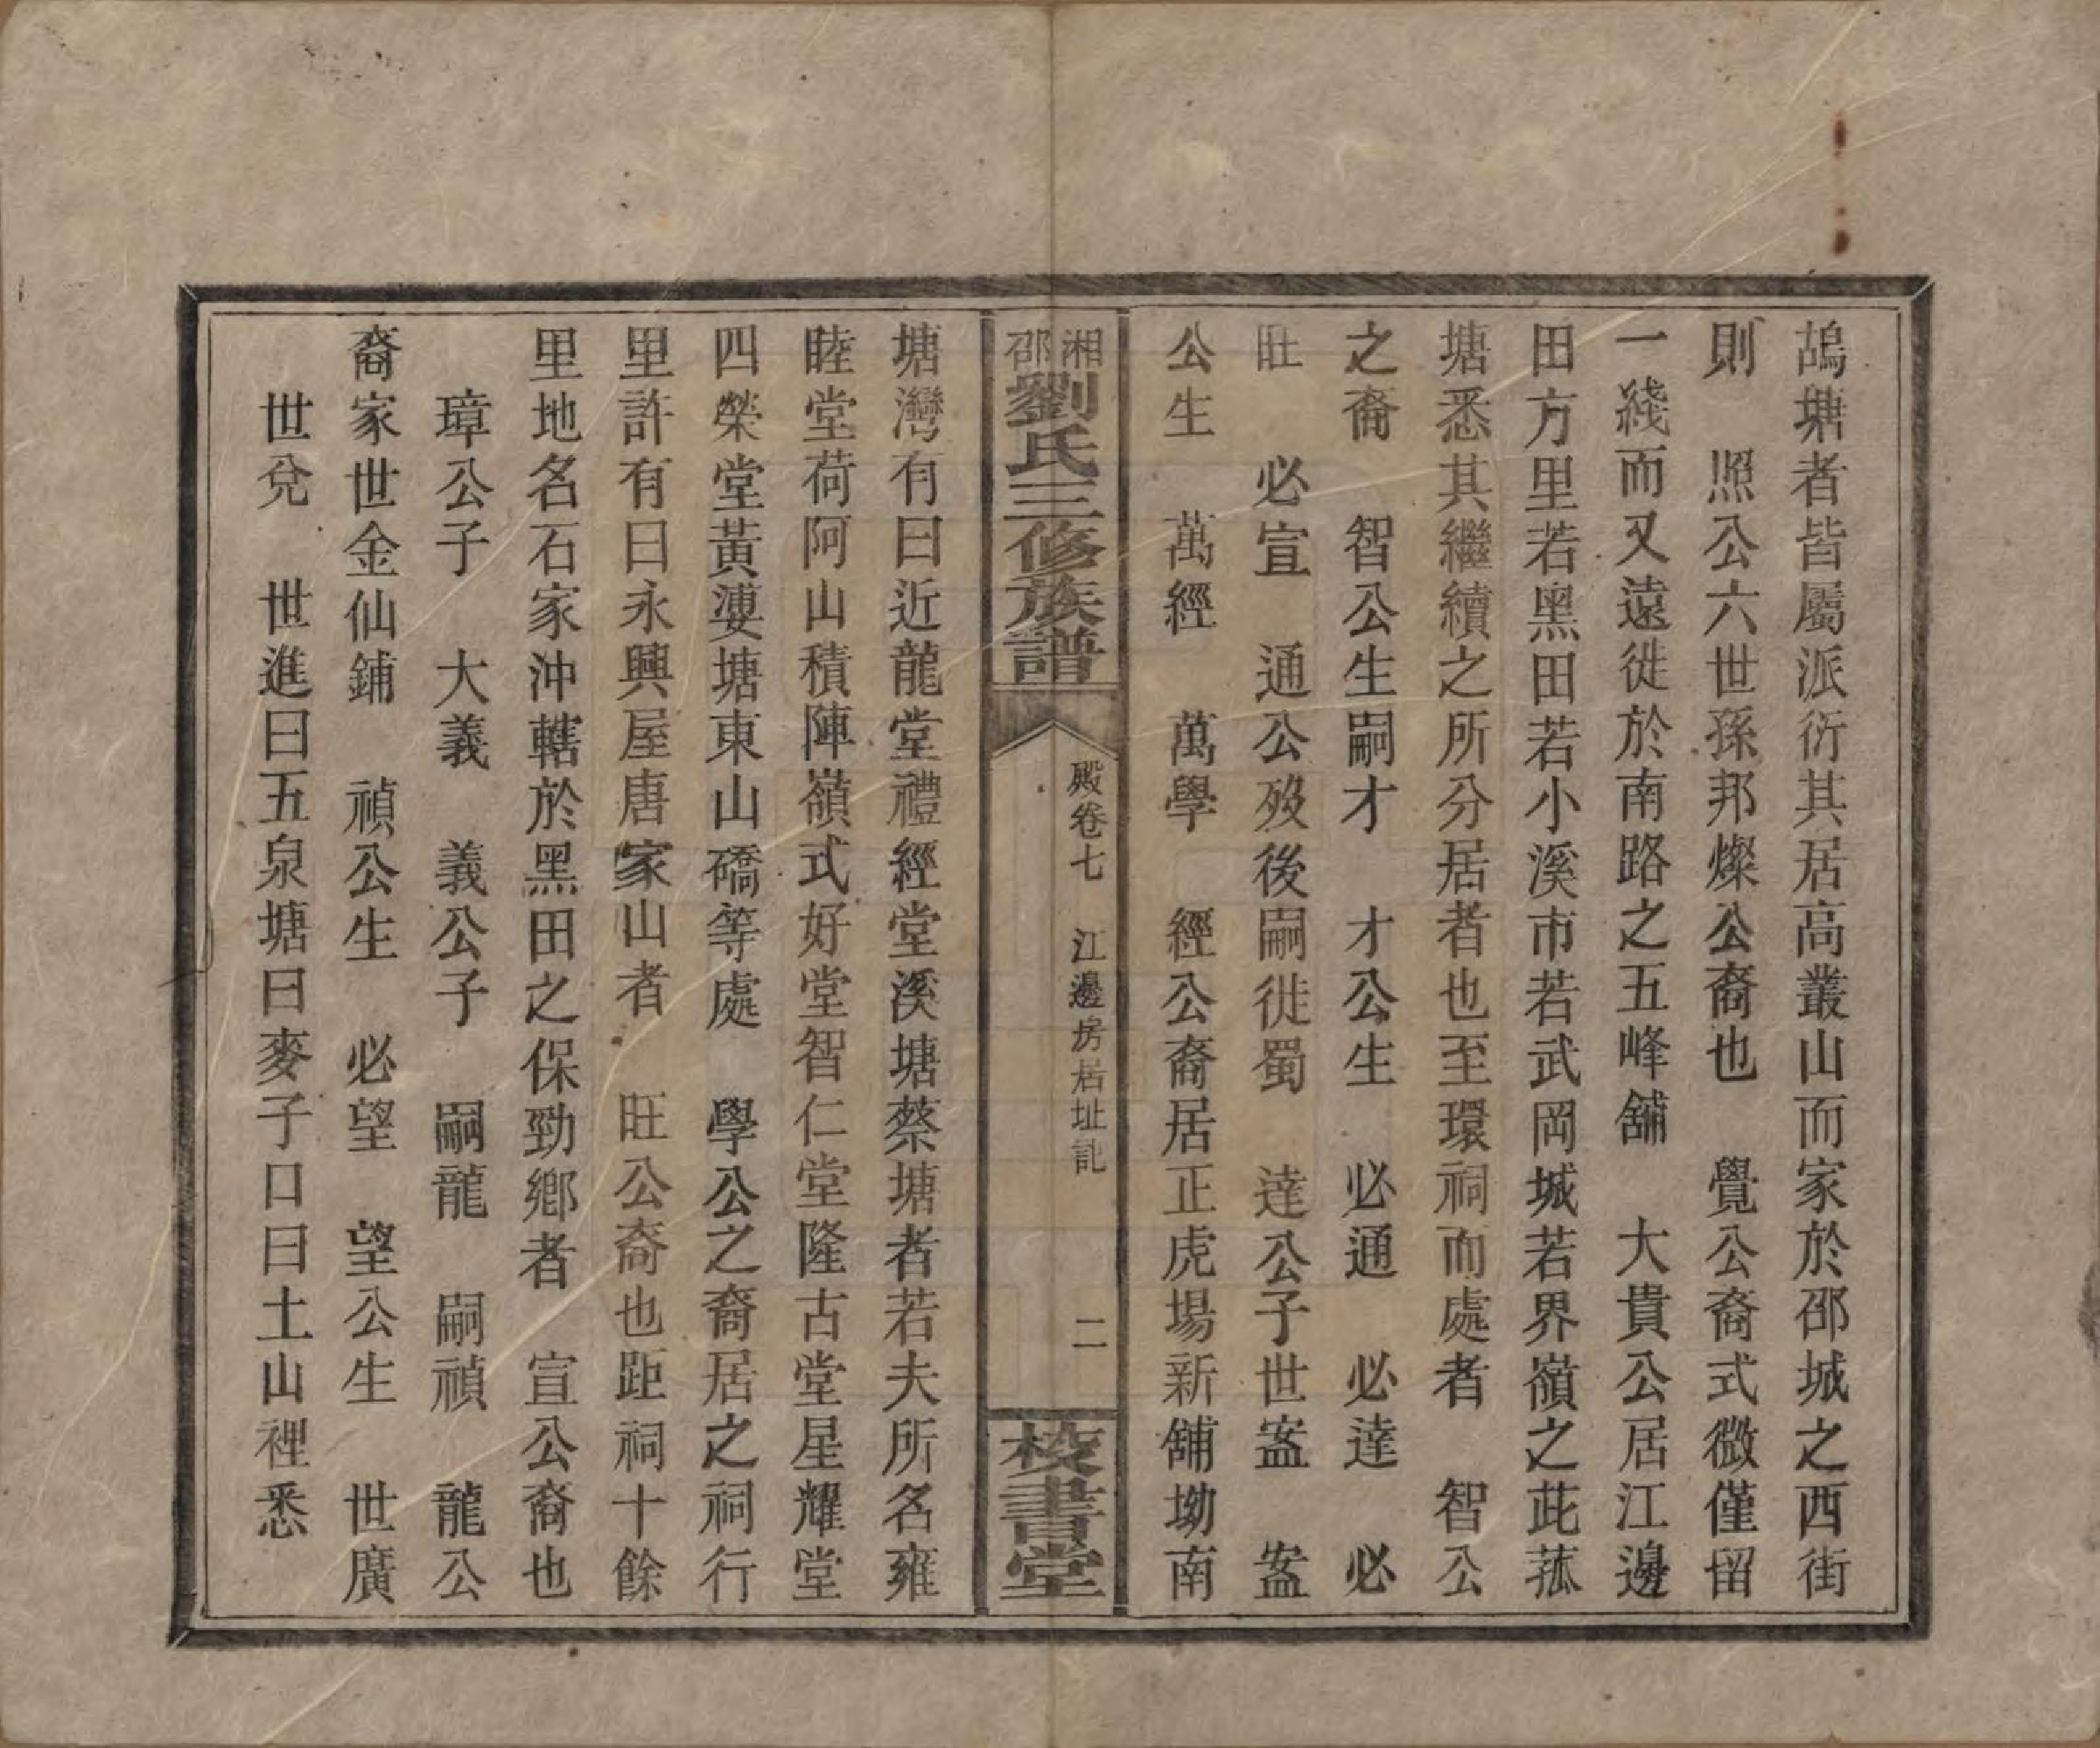 鴣塘者皆屬派衍其居高叢山而家於邵城之西街
則　照公六世孫邦燦公裔也　覺公裔式微僅留
一綫而又遠徙於南路之五峰舖　大貴公居江邊
田方里若黑田若小溪市若武岡城若界嶺之茈菰
塘悉其繼續之所分居者也至環祠而處者　智公
之裔　智公生嗣才　才公生　必通　必達　必
旺　必宣　通公歿後嗣徙蜀　達公子世盝　盝
公生　萬經　萬學　經公裔居正虎場新舖坳南
湘邵劉氏三修族譜
殿卷七　江邊房居址記　二
校書堂
塘灣有曰近龍堂禮經堂溪塘蔡塘者若夫所名雍
睦堂荷阿山積陣嶺式好堂智仁堂隆古堂星耀堂
四榮堂黃塘東山礄等處　學公之裔居之祠行
里許有曰永興屋唐家山者　旺公裔也距祠十餘
里地名石家沖轄於黑田之保勁鄉者　宣公裔也
璋公子　大義　義公子　嗣龍　嗣禎　龍公
裔家世金仙鋪　禎公生　必望　望公生　世廣
世兌　世進曰五泉塘曰麥子口曰土山裡悉